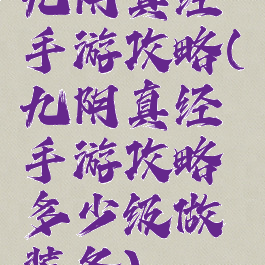 九阴真经
手游攻略(
九阴真经
手游攻略
多少级做
装备)